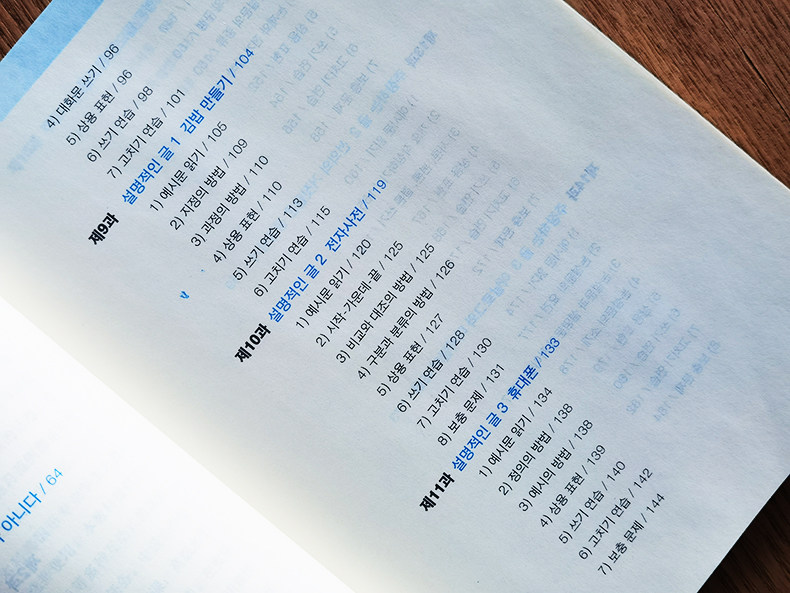 아니다 / 64
4) 대화문 쓰기 / 96
5) 상용 표현 / 96
6) 쓰기 연습 / 98
7) 고치기 연습 / 101
제9과 설명적인 글 1 김밥 만들기 / 104
1) 예시문 읽기 / 105
2) 지정의 방법 / 109
3) 과정의 방법 / 110
4) 상용 표현 / 110
5) 쓰기 연습 / 113
6) 고치기 연습 / 115
제10과 설명적인 글 2 전자사전 / 119
1) 예시문 읽기 / 120
2) 시작-가운데-끝 / 125
3) 비교와 대조의 방법 / 125
4) 구분과 분류의 방법 / 126
5) 상용 표현 / 127
6) 쓰기 연습 / 128
7) 고치기 연습 / 130
8) 보충 문제 / 131
제11과 설명적인 글 3 휴대폰 / 133
1) 예시문 읽기 / 134
2) 정의의 방법 / 138
3) 예시의 방법 / 138
4) 상용 표현 / 139
5) 쓰기 연습 / 140
6) 고치기 연습 / 142
7) 보충 문제 / 144